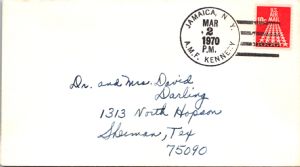 JAMAICA, N. Y.
MAR
2
1970
P.M.
A.M.F. KENNEDY
Dr. and Mrs. David
Darling
1313 North Hopson
Sherman, Tex
75090